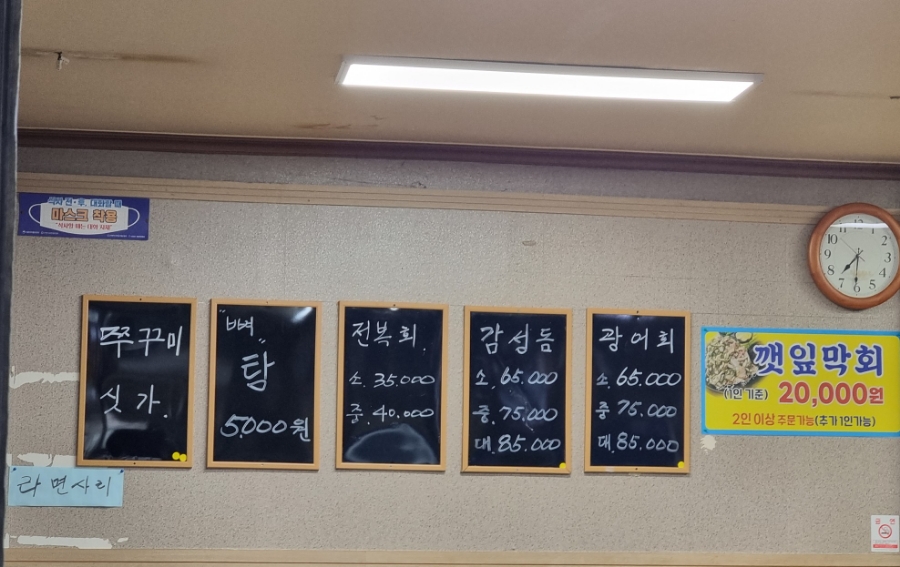 식사 전·후, 대화할 때
마스크 착용
쭈꾸미
싯가.
"뼈"
탕
5,000원
전복회.
소. 35.000
중. 40.000
감성돔
소. 65.000
중. 75.000
대. 85.000
광어회
소. 65.000
중 75.000
대. 85.000
깻잎막회
(1인 기준) 20,000원
2인 이상 주문가능(추가 1인가능)
라면사리
12
1
2
3
4
5
6
7
8
9
10
11
금연